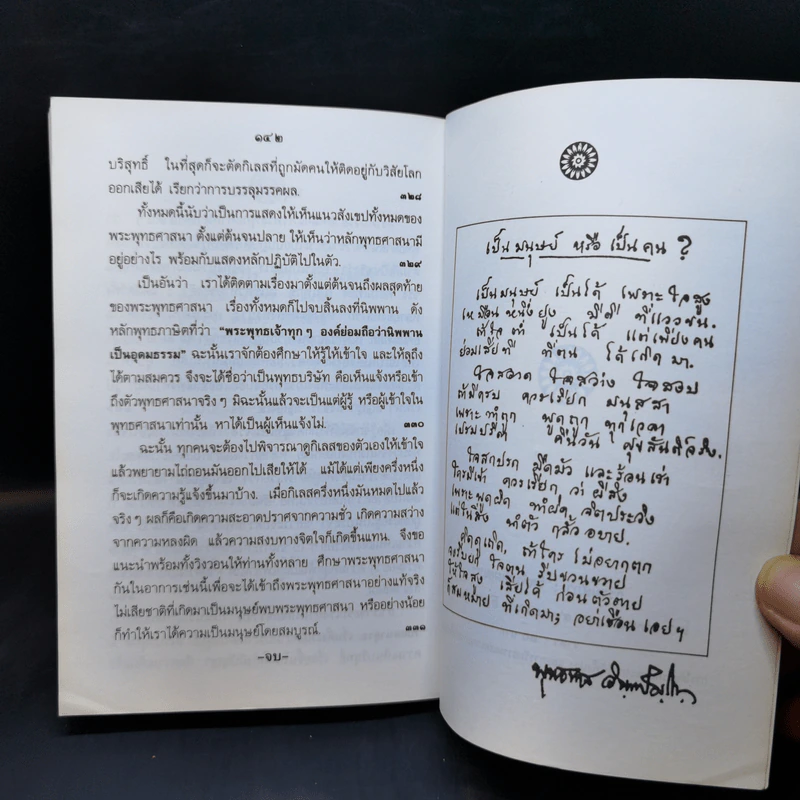 ๑๔๒
บริสุทธิ์ ในที่สุดก็จะตัดกิเลสที่ผูกมัดคนให้ติดอยู่กับวิสัยโลก
ออกเสียได้ เรียกว่าการบรรลุมรรคผล. ๓๒๘
ทั้งหมดนี้นับว่าเป็นการแสดงให้เห็นแนวสังเขปทั้งหมดของ
พระพุทธศาสนา ตั้งแต่ต้นจนปลาย ให้เห็นว่าหลักพุทธศาสนามี
อยู่อย่างไร พร้อมกับแสดงหลักปฏิบัติไปในตัว. ๓๒๙
เป็นอันว่า เราได้ติดตามเรื่องมาตั้งแต่ต้นจนถึงผลสุดท้าย
ของพระพุทธศาสนา เรื่องทั้งหมดก็ไปจบสิ้นลงที่นิพพาน ดัง
หลักพุทธภาษิตที่ว่า "พระพุทธเจ้าทุกๆ องค์ย่อมถือว่านิพพาน
เป็นอุดมธรรม" ฉะนั้นเราจักต้องศึกษาให้รู้ให้เข้าใจ และให้ลุถึง
ได้ตามสมควร จึงจะได้ชื่อว่าเป็นพุทธบริษัท คือเห็นแจ้งหรือเข้า
ถึงตัวพุทธศาสนาจริงๆ มิฉะนั้นแล้วจะเป็นแต่ผู้รู้ หรือผู้เข้าใจใน
พุทธศาสนาเท่านั้น หาได้เป็นผู้เห็นแจ้งไม่. ๓๓๐
ฉะนั้น ทุกคนจะต้องไปพิจารณาดูกิเลสของตัวเองให้เข้าใจ
แล้วพยายามไถ่ถอนมันออกไปเสียให้ได้ แม้ได้แต่เพียงครึ่งหนึ่ง
ก็จะเกิดความรู้แจ้งขึ้นมาบ้าง. เมื่อกิเลสครึ่งหนึ่งมันหมดไปแล้ว
จริงๆ ผลก็คือเกิดความสะอาดปราศจากความชั่ว เกิดความสว่าง
จากความหลงผิด แล้วความสงบทางจิตใจก็เกิดขึ้นแทน. จึงขอ
แนะนำพร้อมทั้งวิงวอนให้ท่านทั้งหลาย ศึกษาพระพุทธศาสนา
กันในอาการเช่นนี้เพื่อจะได้เข้าถึงพระพุทธศาสนาอย่างแท้จริง
ไม่เสียชาติที่เกิดมาเป็นมนุษย์พบพระพุทธศาสนา หรืออย่างน้อย
ก็ทำให้เราได้ความเป็นมนุษย์โดยสมบูรณ์. ๓๓๑
-จบ-
เป็นมนุษย์ หรือ เป็นคน ?
เป็นมนุษย์ เป็นได้ เพราะใจสูง
เหมือนหนึ่งยูง มีดี ที่แววขน.
ถ้าใจต่ำ เป็นได้ แต่เพียงคน
ย่อมเสียที ที่ตน ได้เกิดมา.
ใจสอาด ใจสว่าง ใจสงบ
ถ้ามีครบ ควรเรียก มนุสสา
เพราะทำถูก พูดถูก ทุกเวลา
เปรมปรีดา คืนวัน ศุขสันติ์จริง.
ใจสกปรก มืดมัว และร้อนเร่า
ใครมีเข้า ควรเรียก ว่าผีสิง
เพราะพูดผิด ทำผิด จิตประวิง
แต่ในสิ่ง นำตัว กลั้วอบาย.
คิดดูเถิด, ถ้าใคร ไม่อยากตก
จงรีบยก ใจตน รีบขวนขวาย
ให้ใจสูง เสียได้ ก่อนตัวตาย
ก็สมหมาย ที่เกิดมา; อย่าเชือน เอยฯ
พุทธทาส อินฺทปญฺโญ